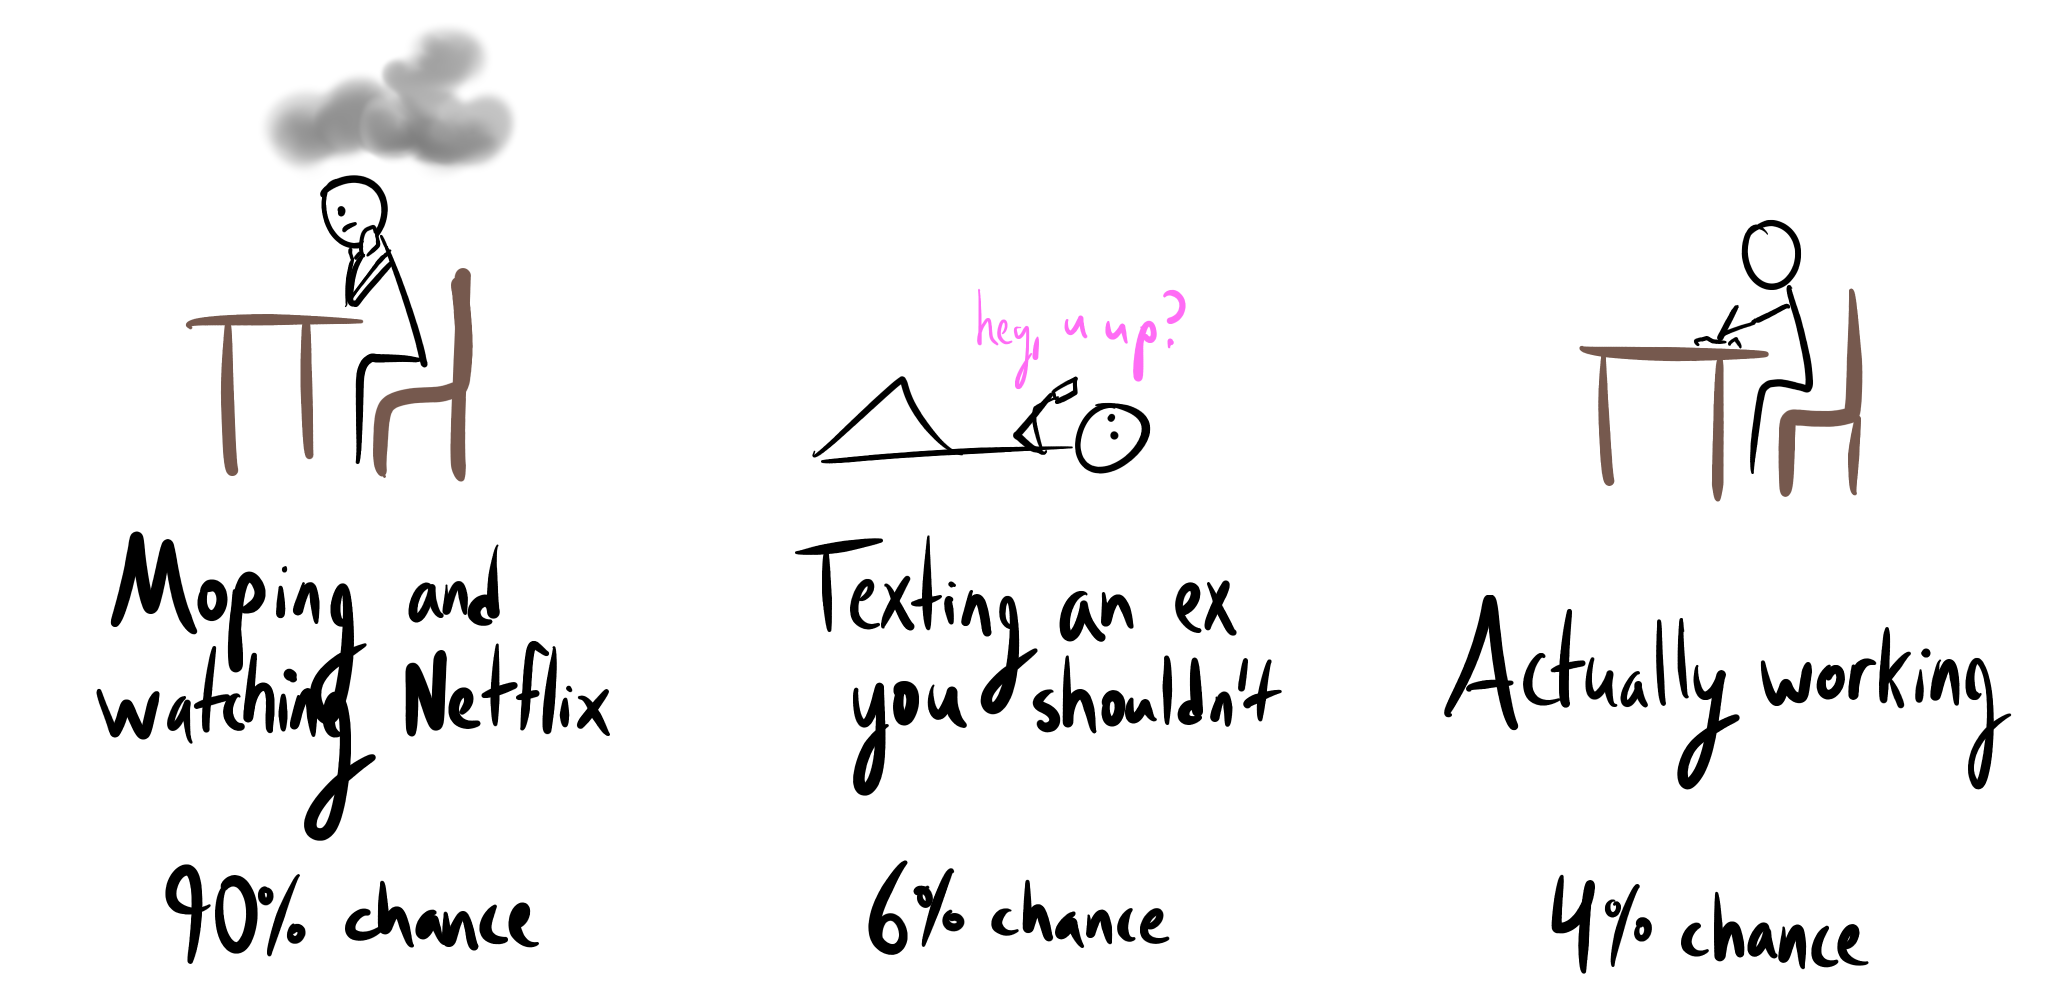 hey, u up?
Moping and
watching Netflix
90% chance
Texting an ex
you shouldn't
6% chance
Actually working
4% chance